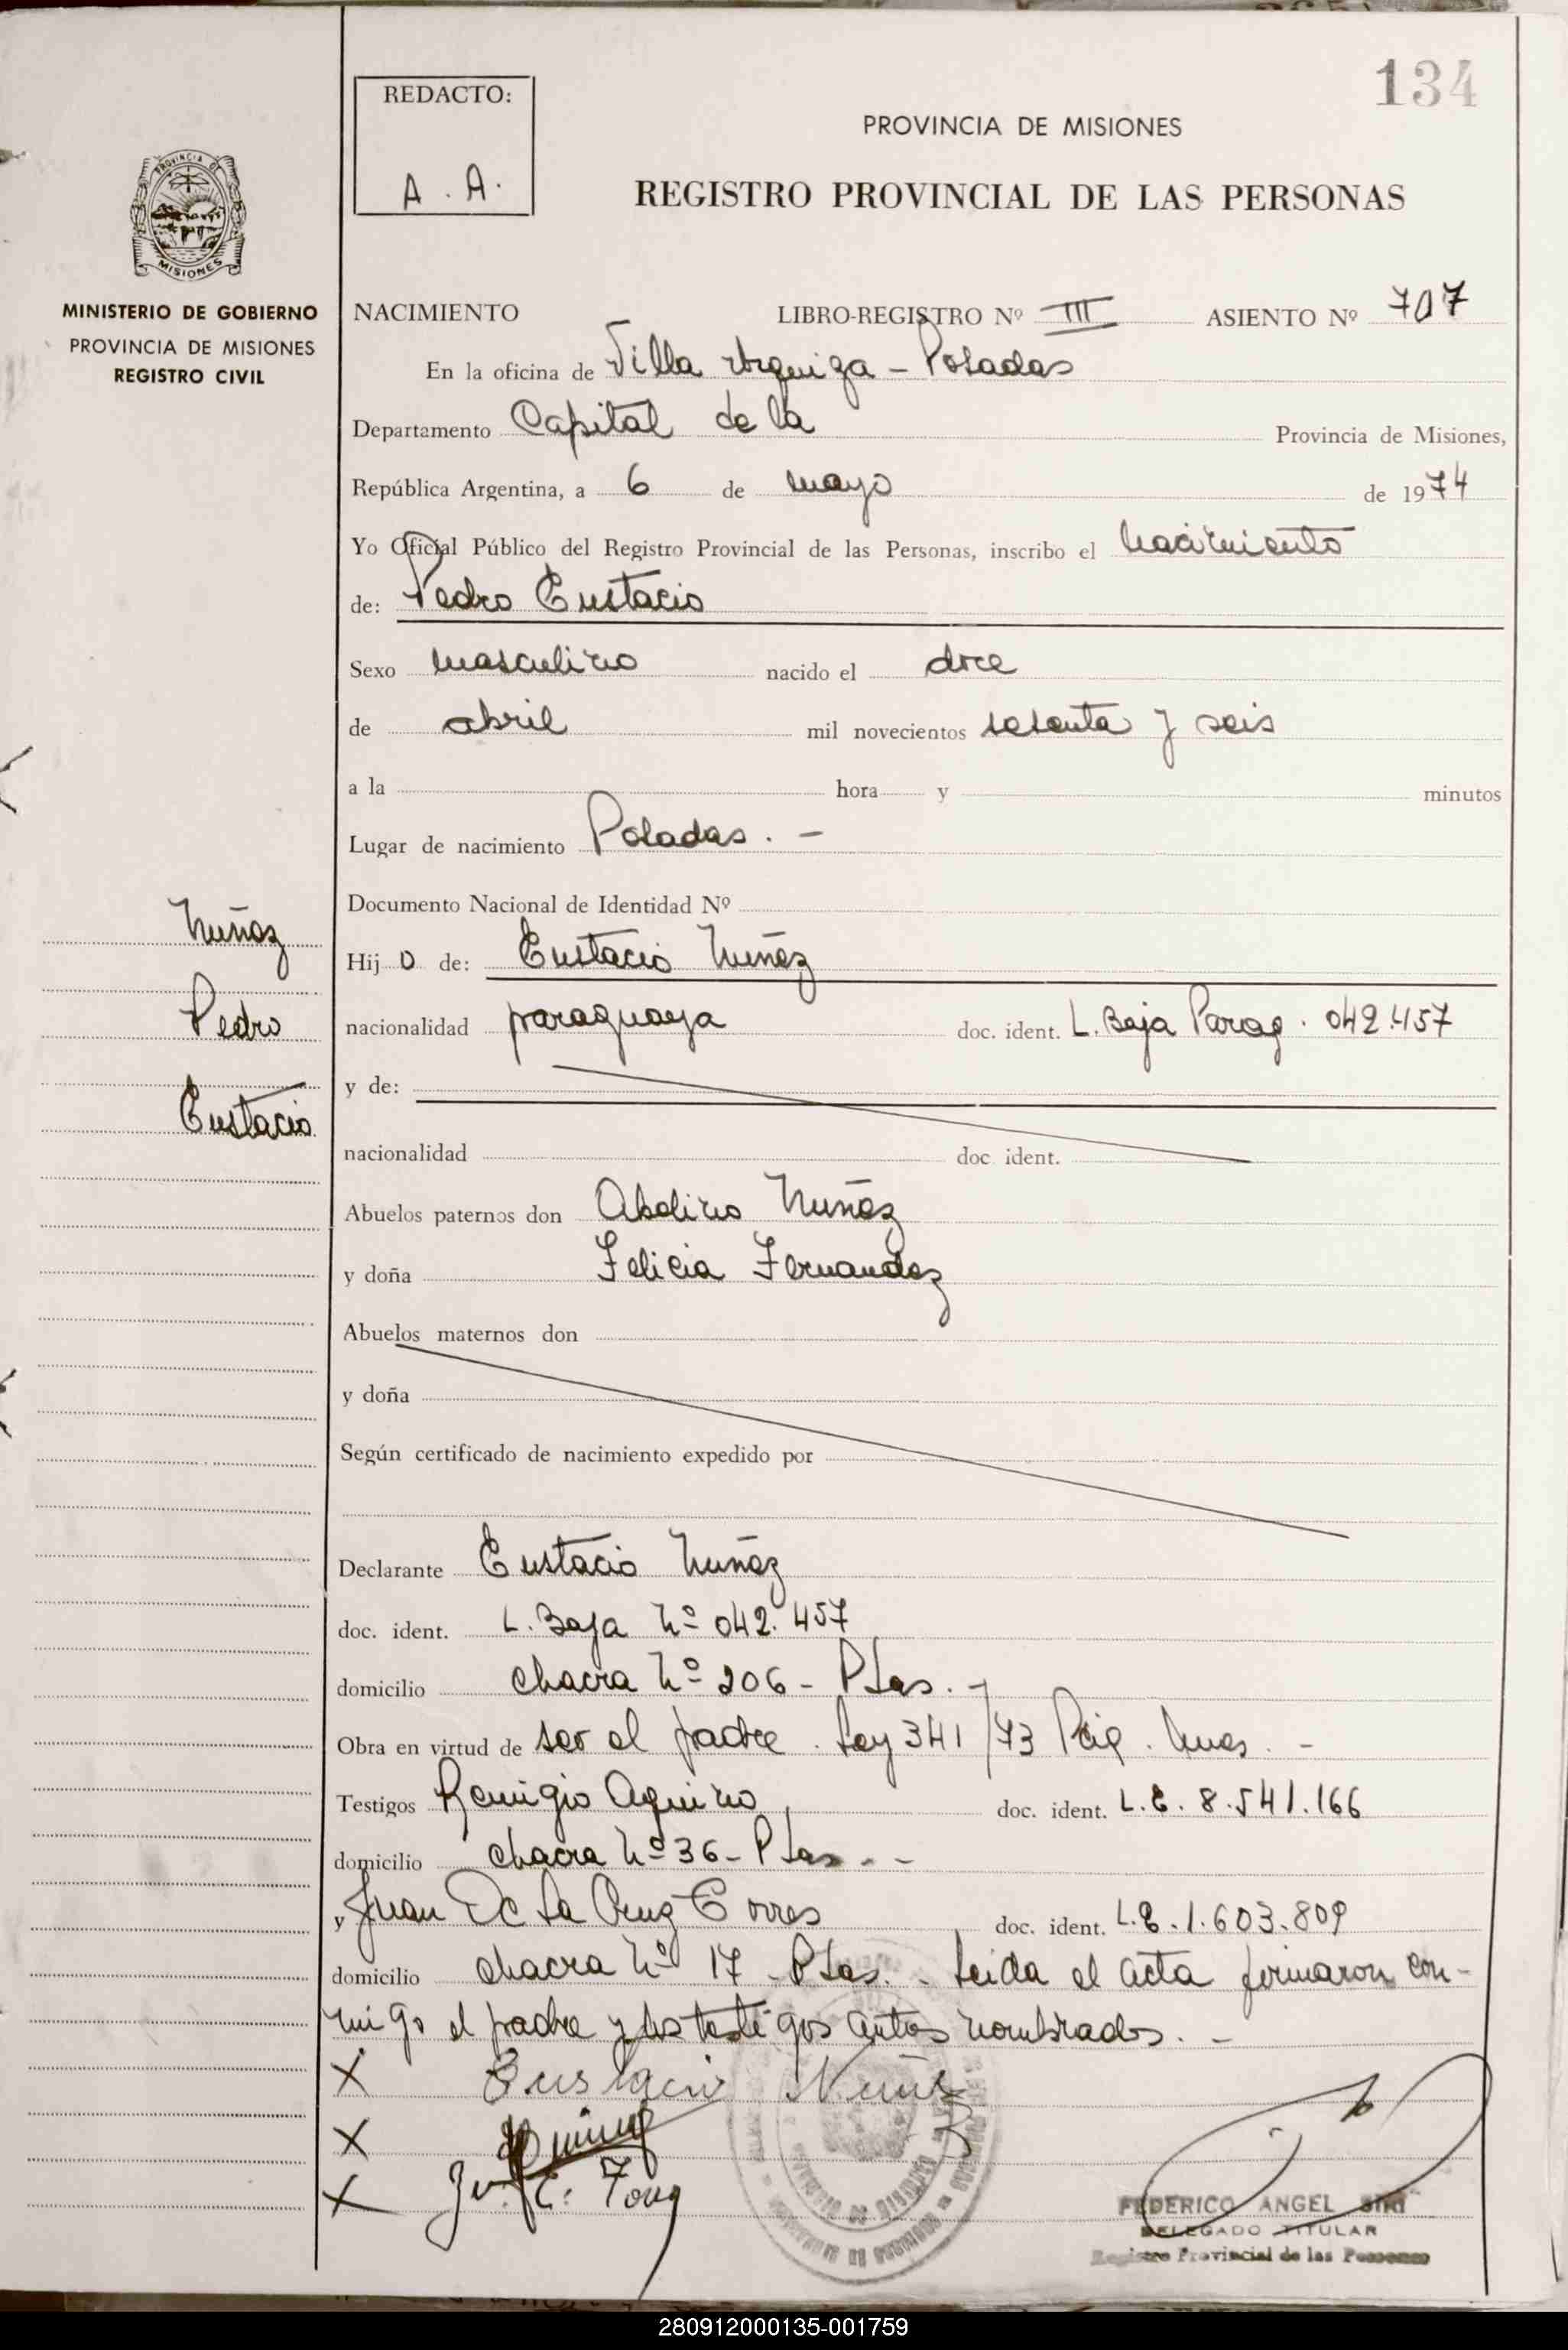 134
REDACTO:
A. A.
PROVINCIA DE MISIONES
REGISTRO PROVINCIAL DE LAS PERSONAS
PROVINCIA DE
MISIONES
MINISTERIO DE GOBIERNO
PROVINCIA DE MISIONES
REGISTRO CIVIL
NACIMIENTO LIBRO-REGISTRO Nº III ASIENTO Nº 707
En la oficina de Villa Urquiza - Posadas
Departamento Capital de la Provincia de Misiones,
República Argentina, a 6 de mayo de 1974
Yo Oficial Público del Registro Provincial de las Personas, inscribo el Nacimiento
de: Pedro Eustacio
Sexo masculino nacido el doce
de abril mil novecientos sesenta y seis
a la hora y minutos
Lugar de nacimiento Posadas. -
Documento Nacional de Identidad Nº
Hijo de: Eustacio Nuñez
nacionalidad paraguaya doc. ident. L. Baja Parag. 042.457
y de:
nacionalidad doc. ident.
Abuelos paternos don Abelino Nuñez
y doña Felicia Fernandez
Abuelos maternos don
y doña
Según certificado de nacimiento expedido por
Declarante Eustacio Nuñez
doc. ident. L. Baja Nº 042.457
domicilio chacra Nº 206 - Pdas. -
Obra en virtud de ser el padre. Ley 341/73
Testigos Remigio Aquino doc. ident. L.E. 8.541.166
domicilio chacra Nº 36 - Pdas. -
y Juan De La Cruz Torres doc. ident. L.E. 1.603.809
domicilio chacra Nº 17 - Pdas. - Leida el acta firmaron con-
migo el padre y los testigos antes nombrados. -
Nuñaz
Pedro
Eustacio
X Eustacio Nuñez
X
X
FEDERICO ANGEL
DELEGADO TITULAR
Registro Provincial de las Personas
280912000135-001759